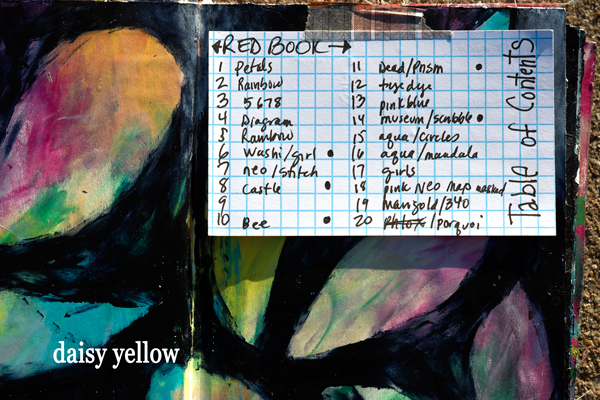 ←RED BOOK→
1 Petals
2 Rainbow
3 5678
4 Diagram
5 Rainbow
6 Washi/girl •
7 neo/stitch
8 Castle •
9
10 Bee •
11 Dead/Prism •
12 tye dye
13 pink blue
14 museum/scribble •
15 aqua/circles
16 aqua/mandala
17 girls
18 pink Neo map masked
19 marigold/340
20 Phlox/porquoi
Table of Contents
daisy yellow